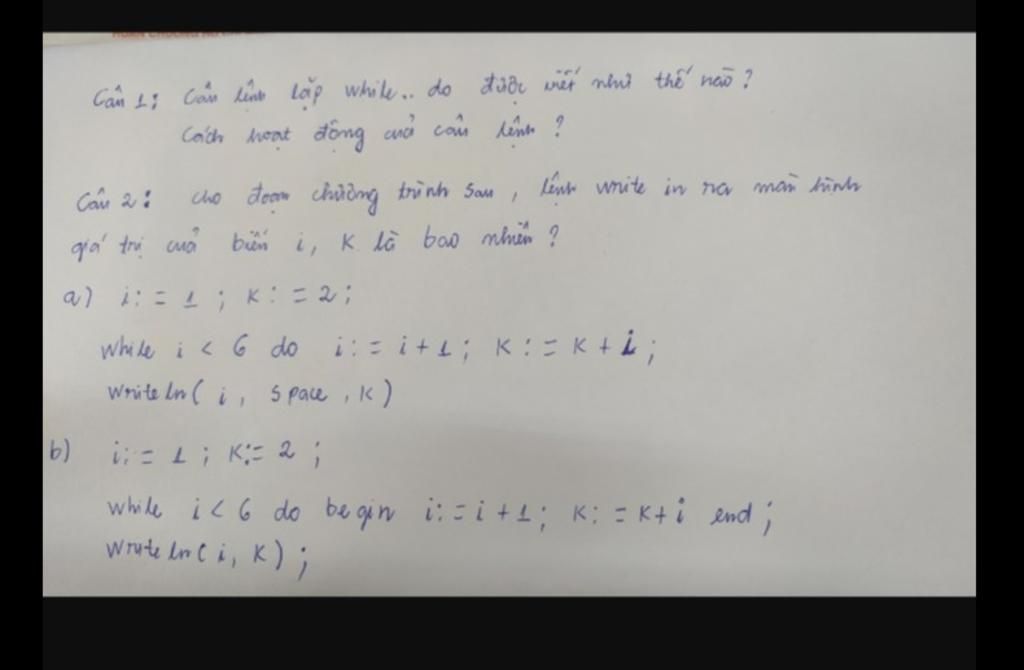 Câu 1: Câu lệnh lặp while.. do được viết như thế nào?
Cách hoạt động cuả câu lệnh?
Câu 2: cho đoạn chương trình sau, lệnh write in ra màn hình
giá trị cuả biến i, K là bao nhiêu?
a) i:=1; K:=2;
While i < 6 do i:=i+1; K:=K+i;
Writeln(i, space, K)
b) i:=1; K:=2;
While i<6 do begin i:=i+1; K:=K+i end;
Writeln(i, K);